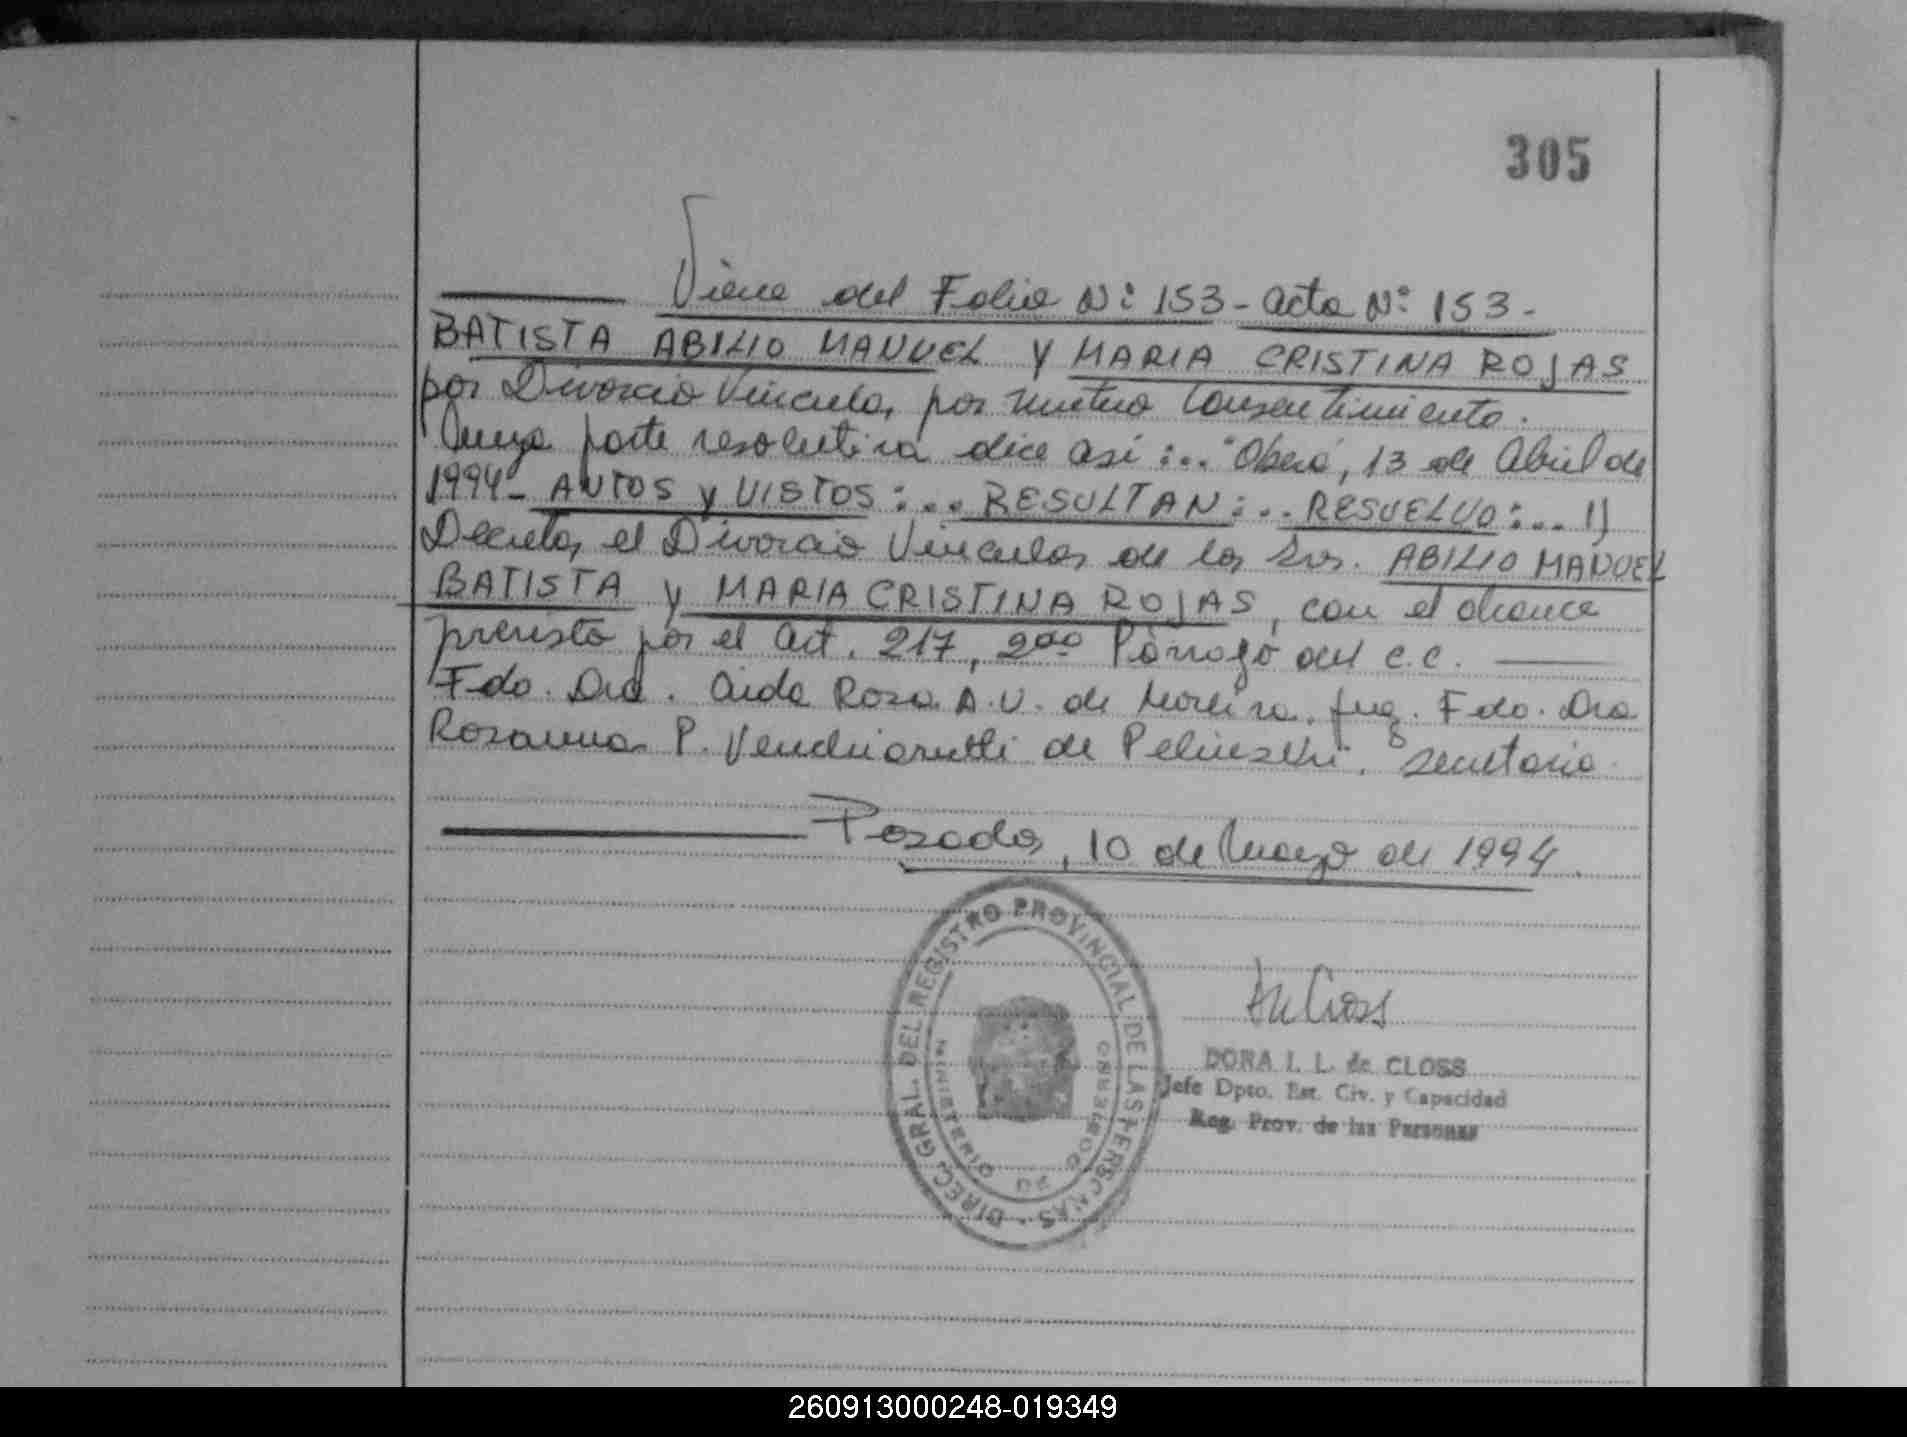 305
Viene del Folio Nº 153 - Acta Nº 153 -
BATISTA ABILIO MANUEL Y MARIA CRISTINA ROJAS
por Divorcio Vincular, por mutuo consentimiento.
Cuya parte resolutiva dice así :... "Oberá, 13 de Abril de
1994 - AUTOS y VISTOS :... RESULTAN :... RESUELVO :... 1)
Decretar el Divorcio Vincular de los Sres. ABILIO MANUEL
BATISTA y MARIA CRISTINA ROJAS, con el alcance
previsto por el art. 217, 2do Párrafo del C.C.
Fdo. Dra. Aida Rosa A.V. de Moreira. Juez. Fdo. Dra
Rosanna P. Venchiarutti de . Secretaria
Posadas, 10 de Marzo de 1994.
DIREC. GRAL. DEL REGISTRO PROVINCIAL DE LAS PERSONAS -
MINISTERIO DE GOBIERNO
DORA I. L. de CLOSS
Jefe Dpto. Est. Civ. y Capacidad
Reg. Prov. de las Personas
260913000248-019349